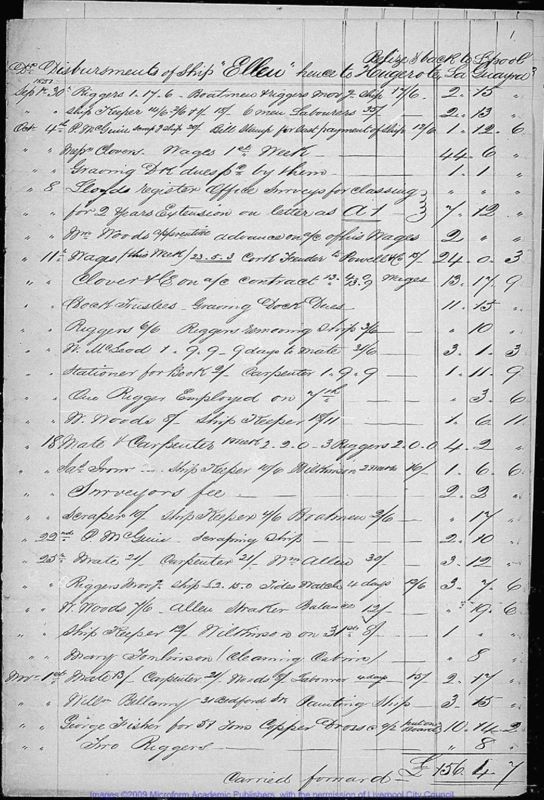 1
Belize & back to L'pool
Disbursments of Ship "Ellen" hence to & La Guayra
1837
Sept 30 Riggers 1.17.6 - Boatmen & riggers mov.g Ship 17/6 - 2. 15 "
" " Ship Keeper 6 new Labourers 35/- 2. 13 "
Oct 4th P. McGuire Bill Stamp for last payment of Ship 12/6 1. 12. 6
" " Messrs Clover Wages 1st Week 44. 6 "
" " Graving Dk dues pd by them 1. 1 "
" 8 Lloyds register Office Surveys for Classing " " "
" " for 2 Years Extension on letter as A 1 7. 12 "
" " Wm Woods apprentice advance on a/c of his Wages 2 " "
" 11th Wages (this Week) 23.5.3 Cork Fender Powell & Co 24. 0. 3
" " Clover & Co on a/c contract Wages 13. 17. 9
" " Dock Trustees Graving Dock Dues 11. 15 "
" " Riggers 6/6 Riggers removing Ship 3/6 " 10 "
" " W. McLeod 1.9.9 - 9 days to Mate 31/6 3. 1. 3
" " Stationer for Book 2/- Carpenter 1.9.9 1. 11. 9
" " One Rigger Employed on 7th " 3. 6
" " W. Woods 8/- Ship Keeper 18/11 1. 6. 11
" 18 Mate & Carpenter 1 Week 2.2.0 - 3 Riggers 2.0.0 4. 2 "
" " Ship Keeper 10/6 Wilkinson 16/- 1. 6. 6
" " Surveyors fee 2. 2 "
" " Scraper 10/- Ship Keeper 4/6 Boatmen 2/6 " 17 "
" 22nd P. McGuire Scraping Ship 2. 10 "
" 25th Mate 21/- Carpenter 21/- Wm Allen 30/- 3. 12 "
" " Riggers Mov.g Ship £2.15.0 Tides Watch 4 days 12/6 3. 7. 6
" " W. Woods 7/6 Allen Straker Balance 12/- " 19. 6
" " Ship Keeper 12/- Wilkinson on 31st 8/- 1 " "
" " Mary Tomlinson (Cleaning Cabin) " 8 "
Nov 1st Mate 13/- Carpenter 21/- Woods 8/- Labourer 4 days 15/- 2. 17 "
" " Willm Bellamy 31 Bedford St Painting Ship 3. 15 "
" " George Fisher for 51 Tons Copper Dross put on Board 10. 14. 2
" " Two Riggers " 8 "
Carried forward £156. 4. 7
Images ©2009 Microform Academic Publishers, with the permission of Liverpool City Council.